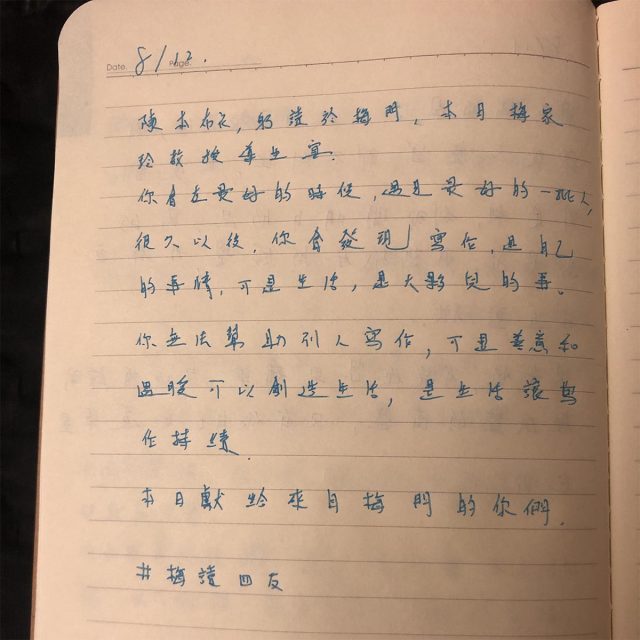 Date. 8/12.
Page.
陳本衣, 躬讀於梅門, 本日梅家
給教授畢生宴.
你會在最好的時候,遇見最好的一批人,
很久以後,你會發現寫作,是自己
的事情,可是生活,是大夥兒的事。
你無法幫助別人寫作,可是善意和
溫暖可以創造生活,是生活讓寫
作持續.
本日獻給來自梅門的你們.
#梅讀四友